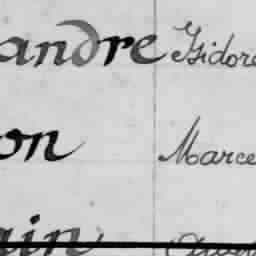 andre Isidore
on Marce
ain